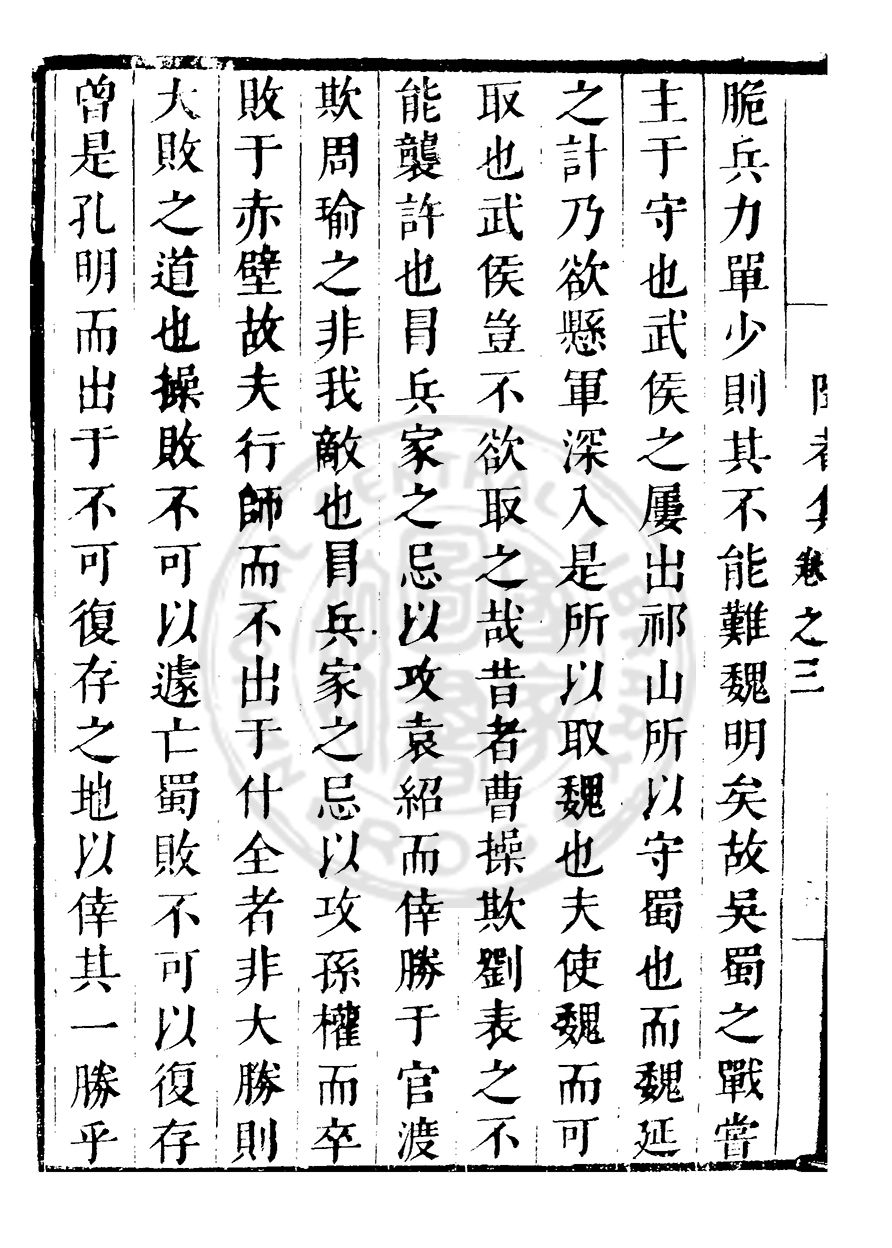 脆兵力單少則其不能難魏明矣故吳蜀之戰嘗
主于守也武侯之屢出祁山所以守蜀也而魏延
之計乃欲懸軍深入是所以取魏也夫使魏而可
取也武侯豈不欲取之哉昔者曹操欺劉表之不
能襲許也冒兵家之忌以攻袁紹而倖勝于官渡
欺周瑜之非我敵也冒兵家之忌以攻孫權而卒
敗于赤壁故夫行師而不出于什全者非大勝則
大敗之道也操敗不可以遽亡蜀敗不可以復存
曾是孔明而出于不可復存之地以倖其一勝乎
卷之三